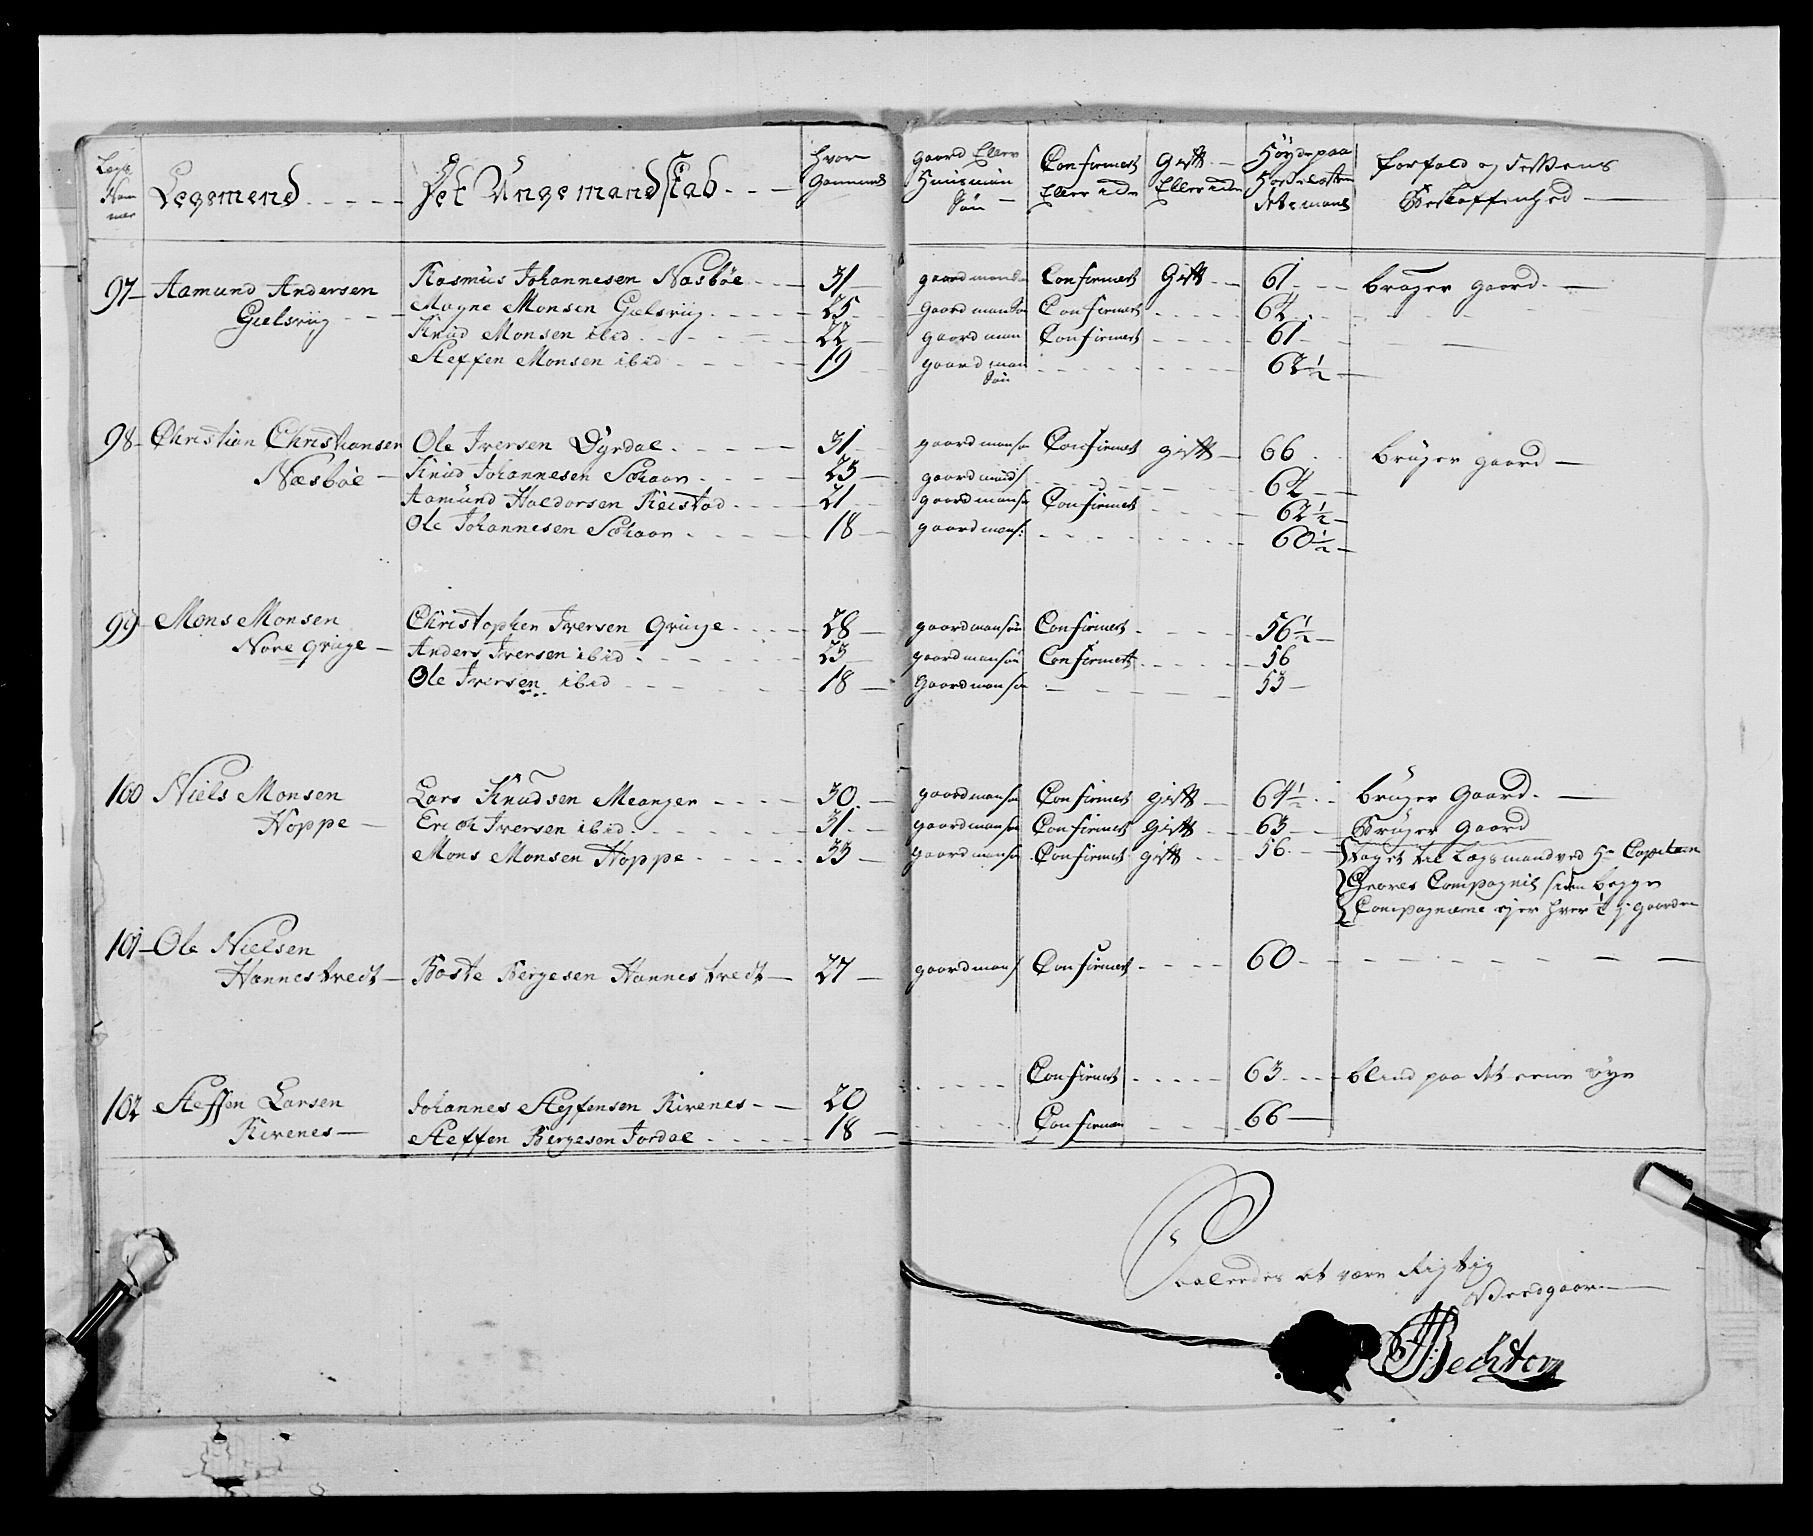 Legs Num mer | Legemend | Det Ungemandskab | hvor Gammel | gaard Eller Huusmans Søn | Confirmert Eller ide | Gift Eller ide | Høyde paa | forfald og dessens Beskaffenhed
97 Aamund Andersen | Rasmus Johannesen Nasbøe | 31 | gaardmands | Confirmert | Gift | 61 | bruger gaard
Gielsviig | Magne Monsen Gielsviig | 25 | gaardmansø | Confirmert | 62
Knud Monsen ibid | 22 | gaardman | Confirmert | 61
Steffen Monsen ibid | 19 | gaardman Søn | 62½
98 Christian Christiansen | Ole Iversen Dyrdal | 31 | gaardmansø | Confirmert | gift | 66 | bruger gaard
Næsbøe | Knud Johannesen Schaar | 23 | gaardmands | 62
Aamund Haldorsen Reistad | 21 | gaardmansø | Confirmert | 62½
Ole Johannesen Schaar | 18 | gaardmans: | 60½
99 Mons Monsen | Christophen Iversen Gruge | 28 | gaardmansøn | Confirmert | 56½
Nore Gruge | Anders Iversen ibid | 23 | gaardmansøn | Confirmert | 56
Ole Iversen ibid | 18 | Gaardmansø | 53
100 Niels Monsen | Lars Knudsen Meanger | 30 | gaardmansø | Confirmert | gift | 64½ | bruger Gaard
Hoppe | Erich Iversen ibid | 31 | gaardmansø | Confirmert | Gift | 63 | Bruger Gaard
Mons Monsen Hoppe | 33 | gaardmansø | Confirmert | gift | 56 | taget til Lægsmand ved Hr Capitain
Compagnie siden begge
Compagnierne ejer hver ½ i gaarden
101 Ole Nielsen
Hannestvedt | Baste Bergesen Hannestvedt | 27 | gaardmans | Confirmert | 60
102 Steffen Larsen | Johannes Steffensen Kirenes | 20 | Confirmert | 63 | blind paa det eene øye
Kirenes | Steffen Bergesen Jordal | 18 | Confirmer | 66
Saaledes at være Rigtig
Bechtor